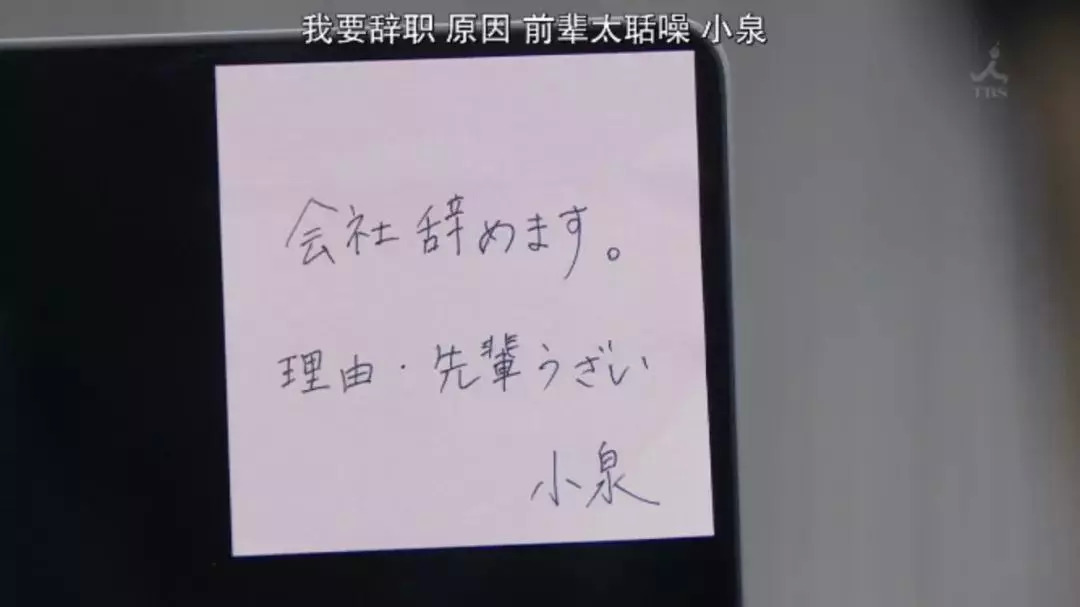 我要辞职 原因 前辈太聒噪 小泉
TBS
会社辞めます。
理由・先輩うざい
小泉